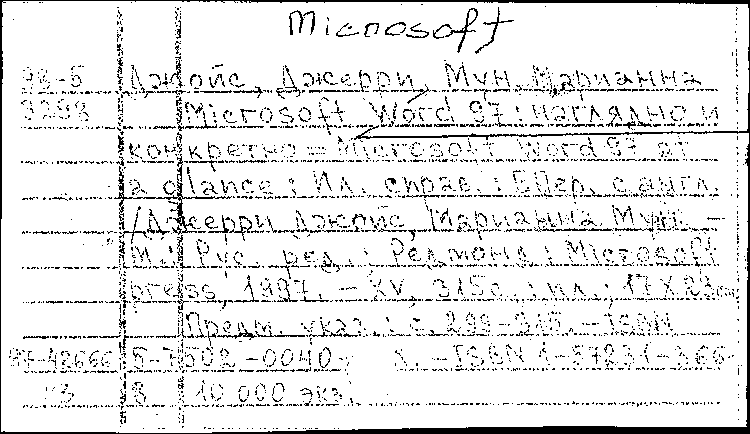 Microsoft
98-5 Джойс, Джерри, Мун, Марианна
3298 Microsoft Word 97 : наглядно и
конкретно = Microsoft Word 97 at
a glance : Ил. справ. : [Пер. с англ.
/Джерри Джойс, Марианна Мун. –
М.: Рус. ред. ; Редмонд : Microsoft
press, 1997. – XV, 315с. : ил. ; 17 X 23см
Предм. указ. : с. 299-315. – ISBN
97-42666 5-7502-0040- X. – ISBN 1-57231-366-
8 10 000 экз.